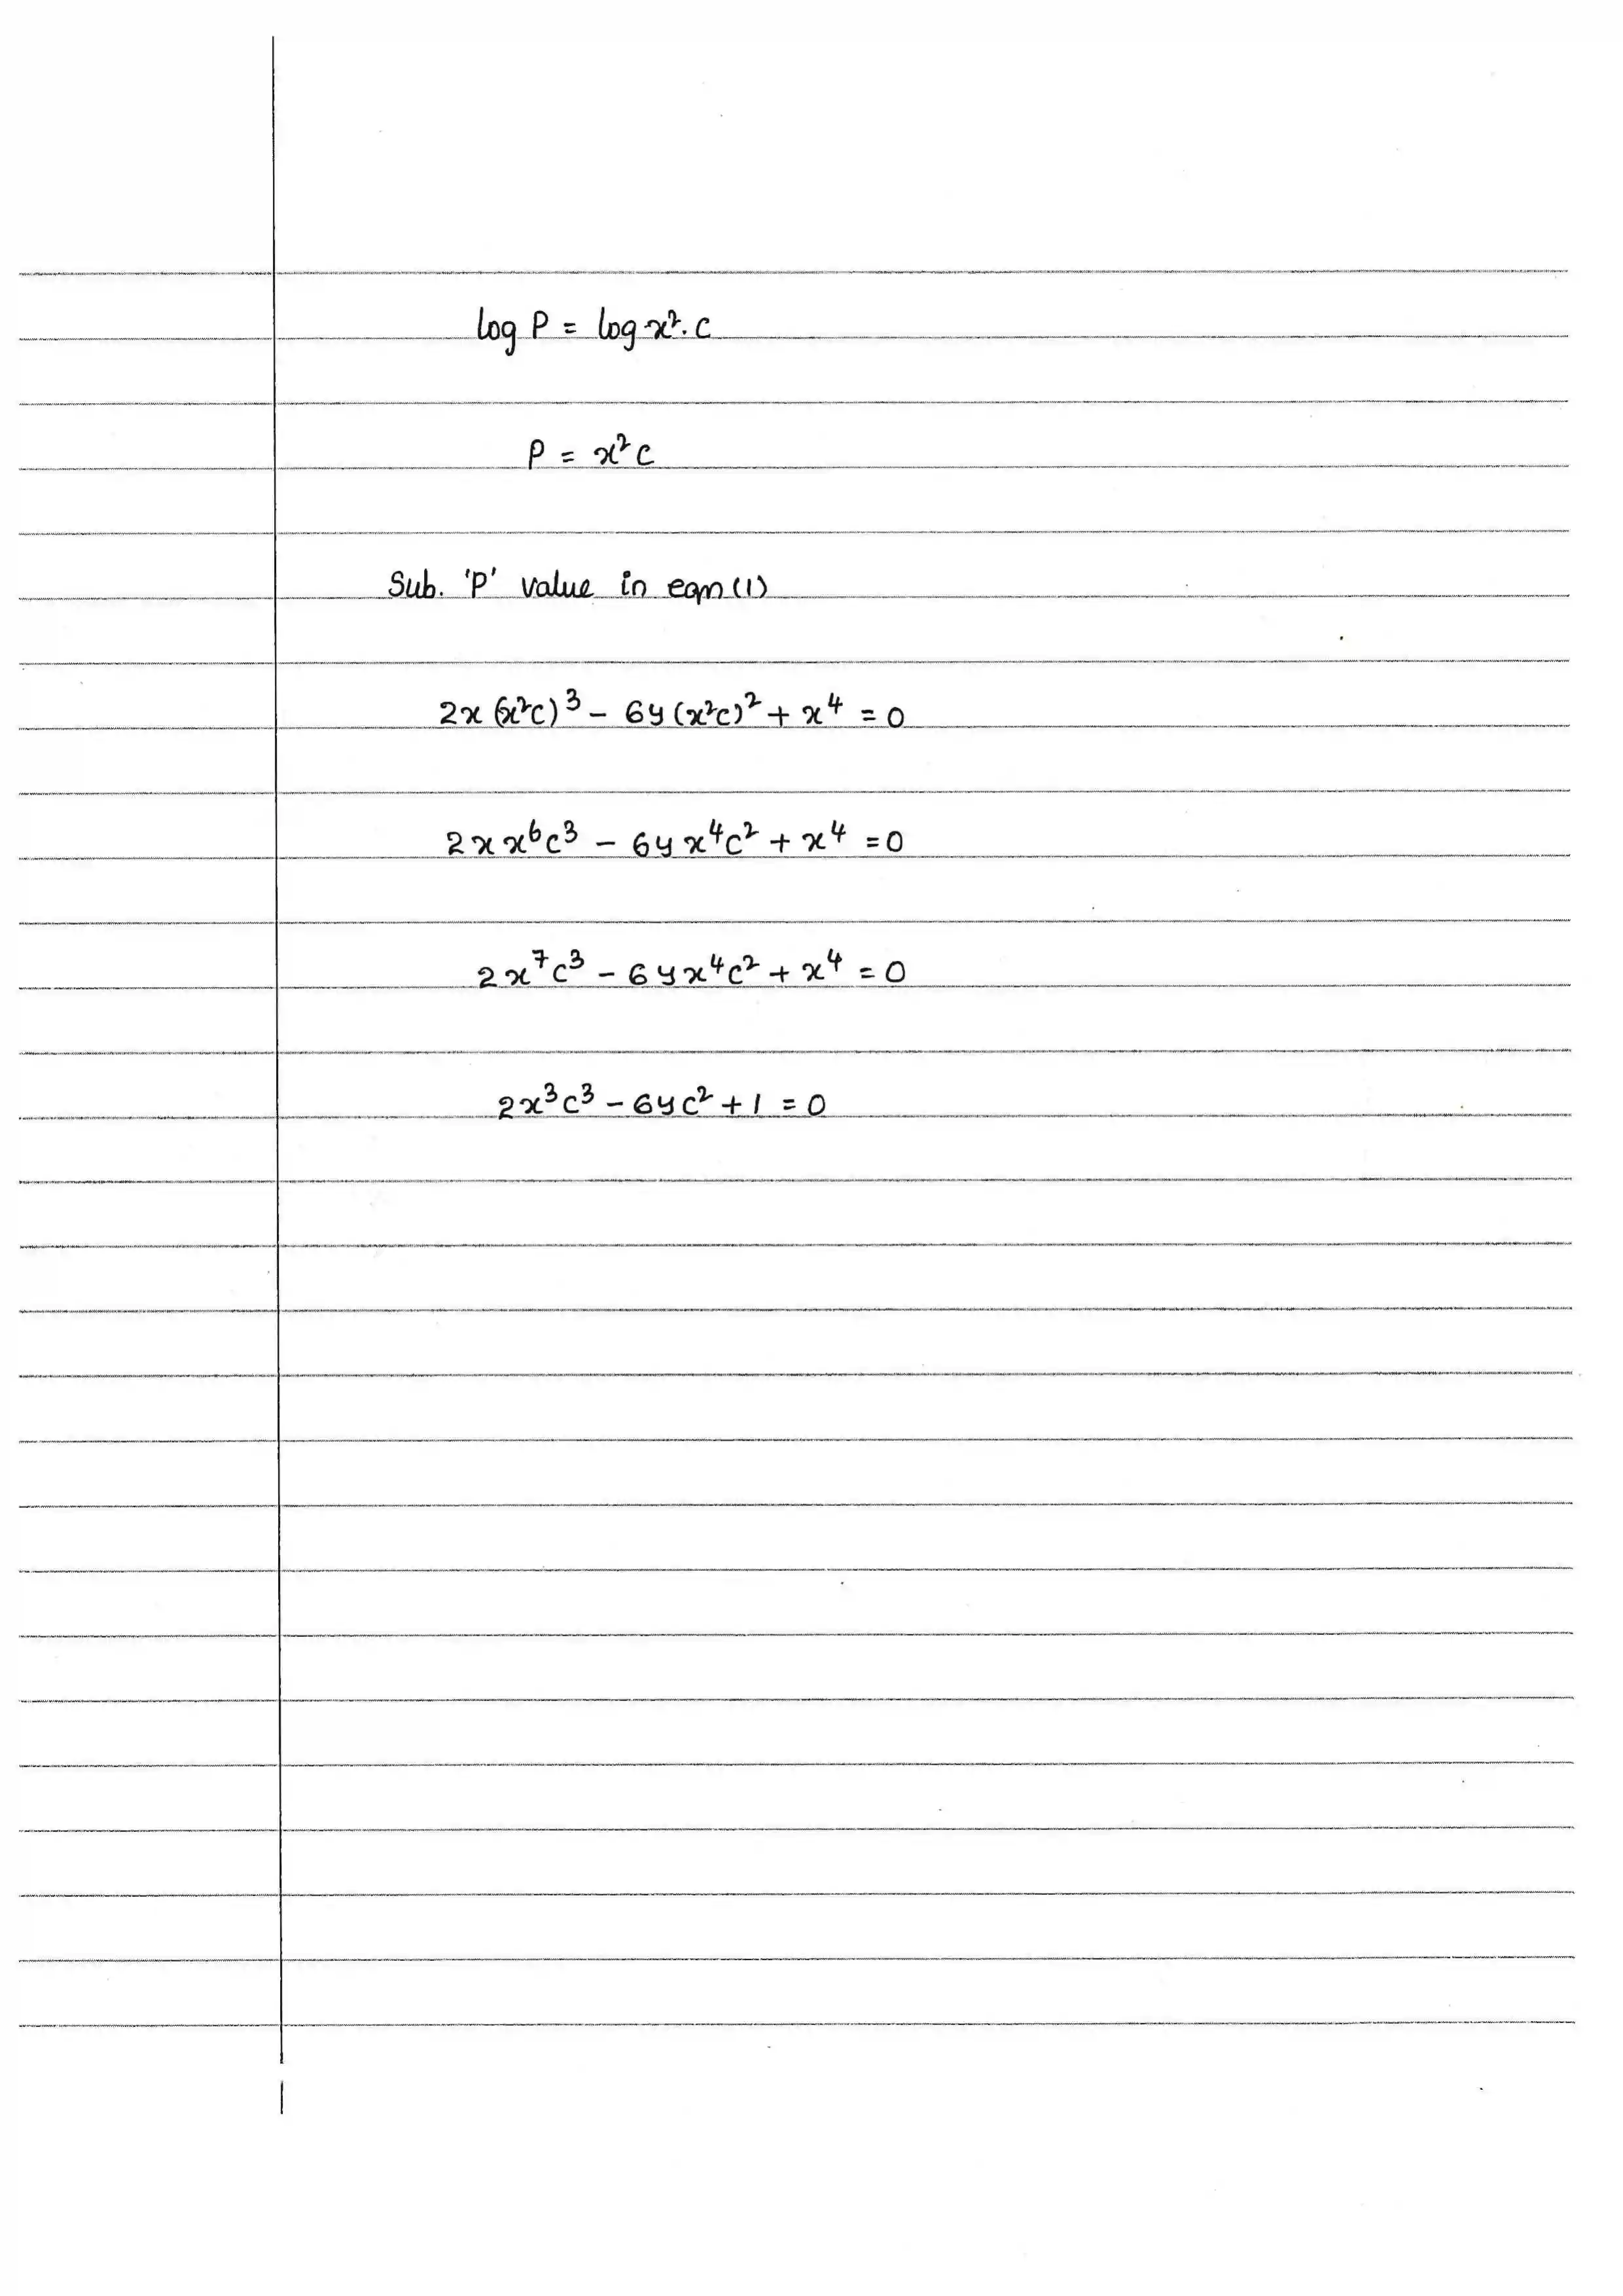 log P = log x². c
P = x² c
Sub. 'P' value in eqn (1)
2x (x²c)³ - 6y (x²c)² + x⁴ = 0
2x x⁶c³ - 6y x⁴c² + x⁴ = 0
2x⁷c³ - 6y x⁴c² + x⁴ = 0
2x³c³ - 6yc² + 1 = 0